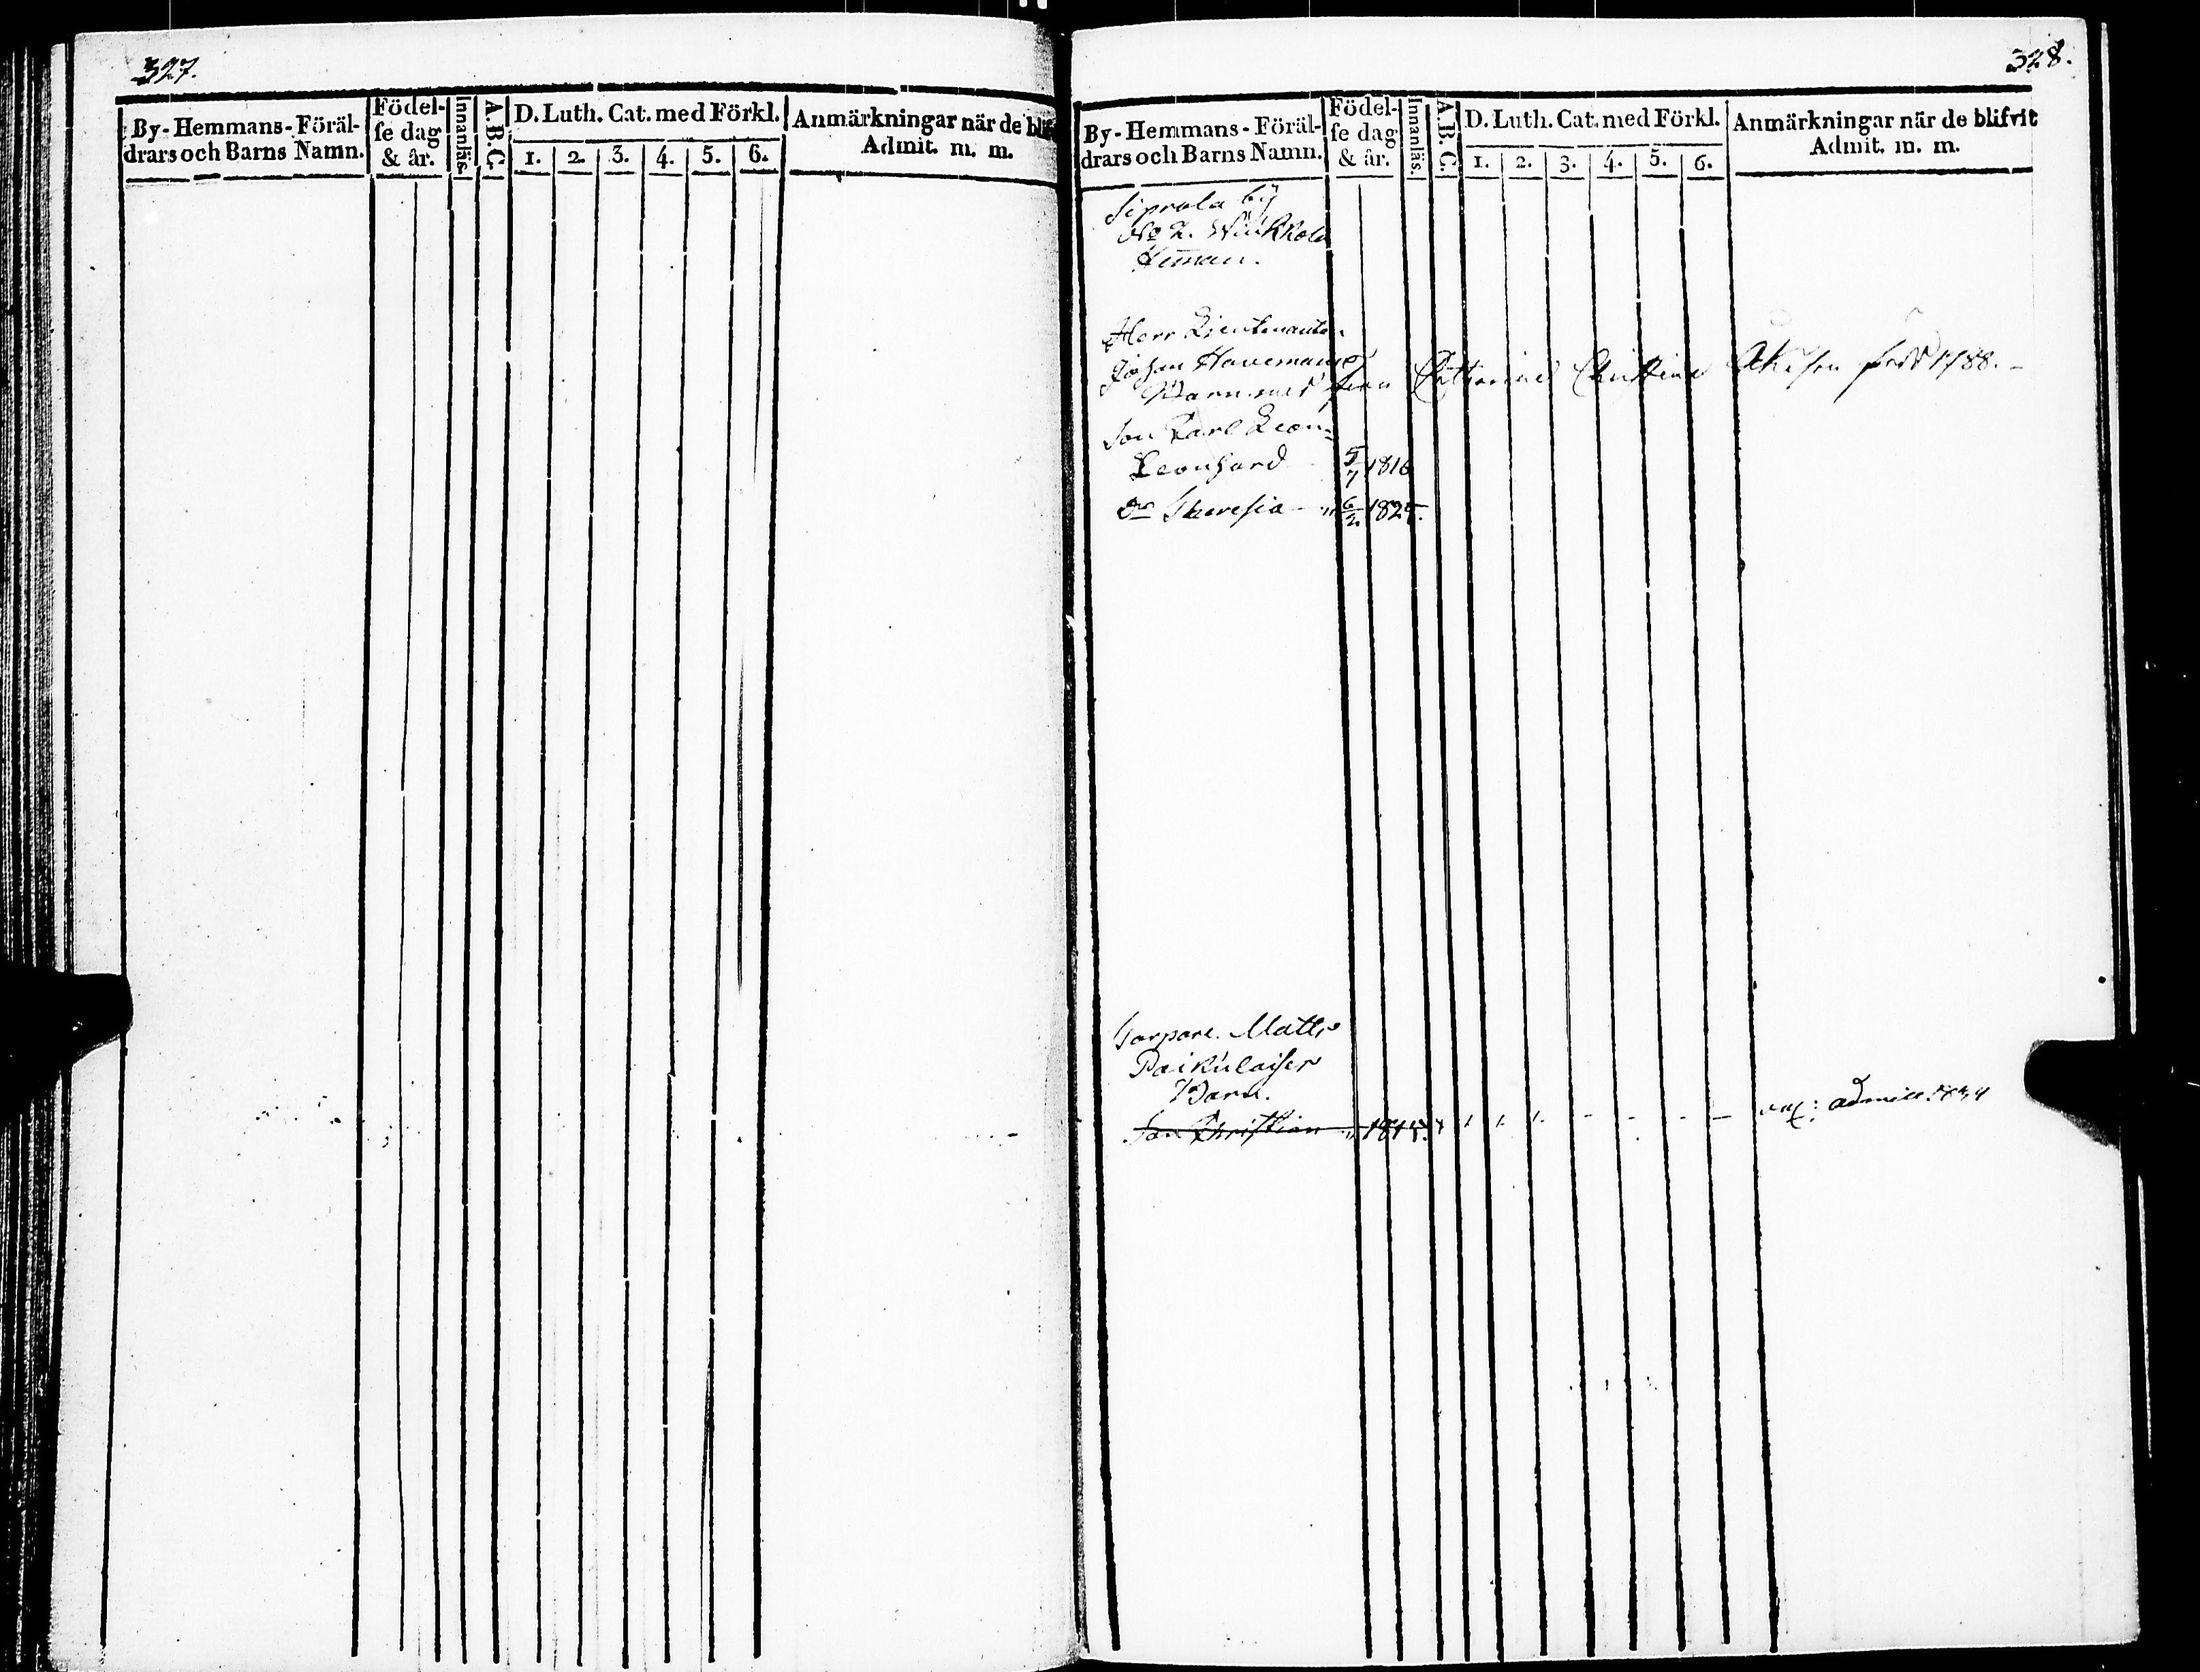 327.
By-Hemmans-Föräl-
drars och Barns Namn.
Födel-
se dag
& år.
Innanläs.
A.B.C.
D. Luth. Cat. med Förkl.
1. 2. 3. 4. 5. 6.
Anmärkningar när de blif
Admit. m. m.
328.
By-Hemmans-Föräl-
drars och Barns Namn.
Födel-
se dag
& år.
Innanläs.
A.B.C.
D. Luth. Cat. med Förkl.
1. 2. 3. 4. 5. 6.
Anmärkningar när de blifvit
Admit. m. m.
Siprola by
No 2.
Herr Lieutenanten
Johan Havemans
Barn med fru Catharina Christina född 1788.
Son Carl
Leonhard 5/7 1816
Dr Theresia 6/2 1825.
Matts
Paikulaiser
Barn.
Son Christian 1815.
admitt. 1834